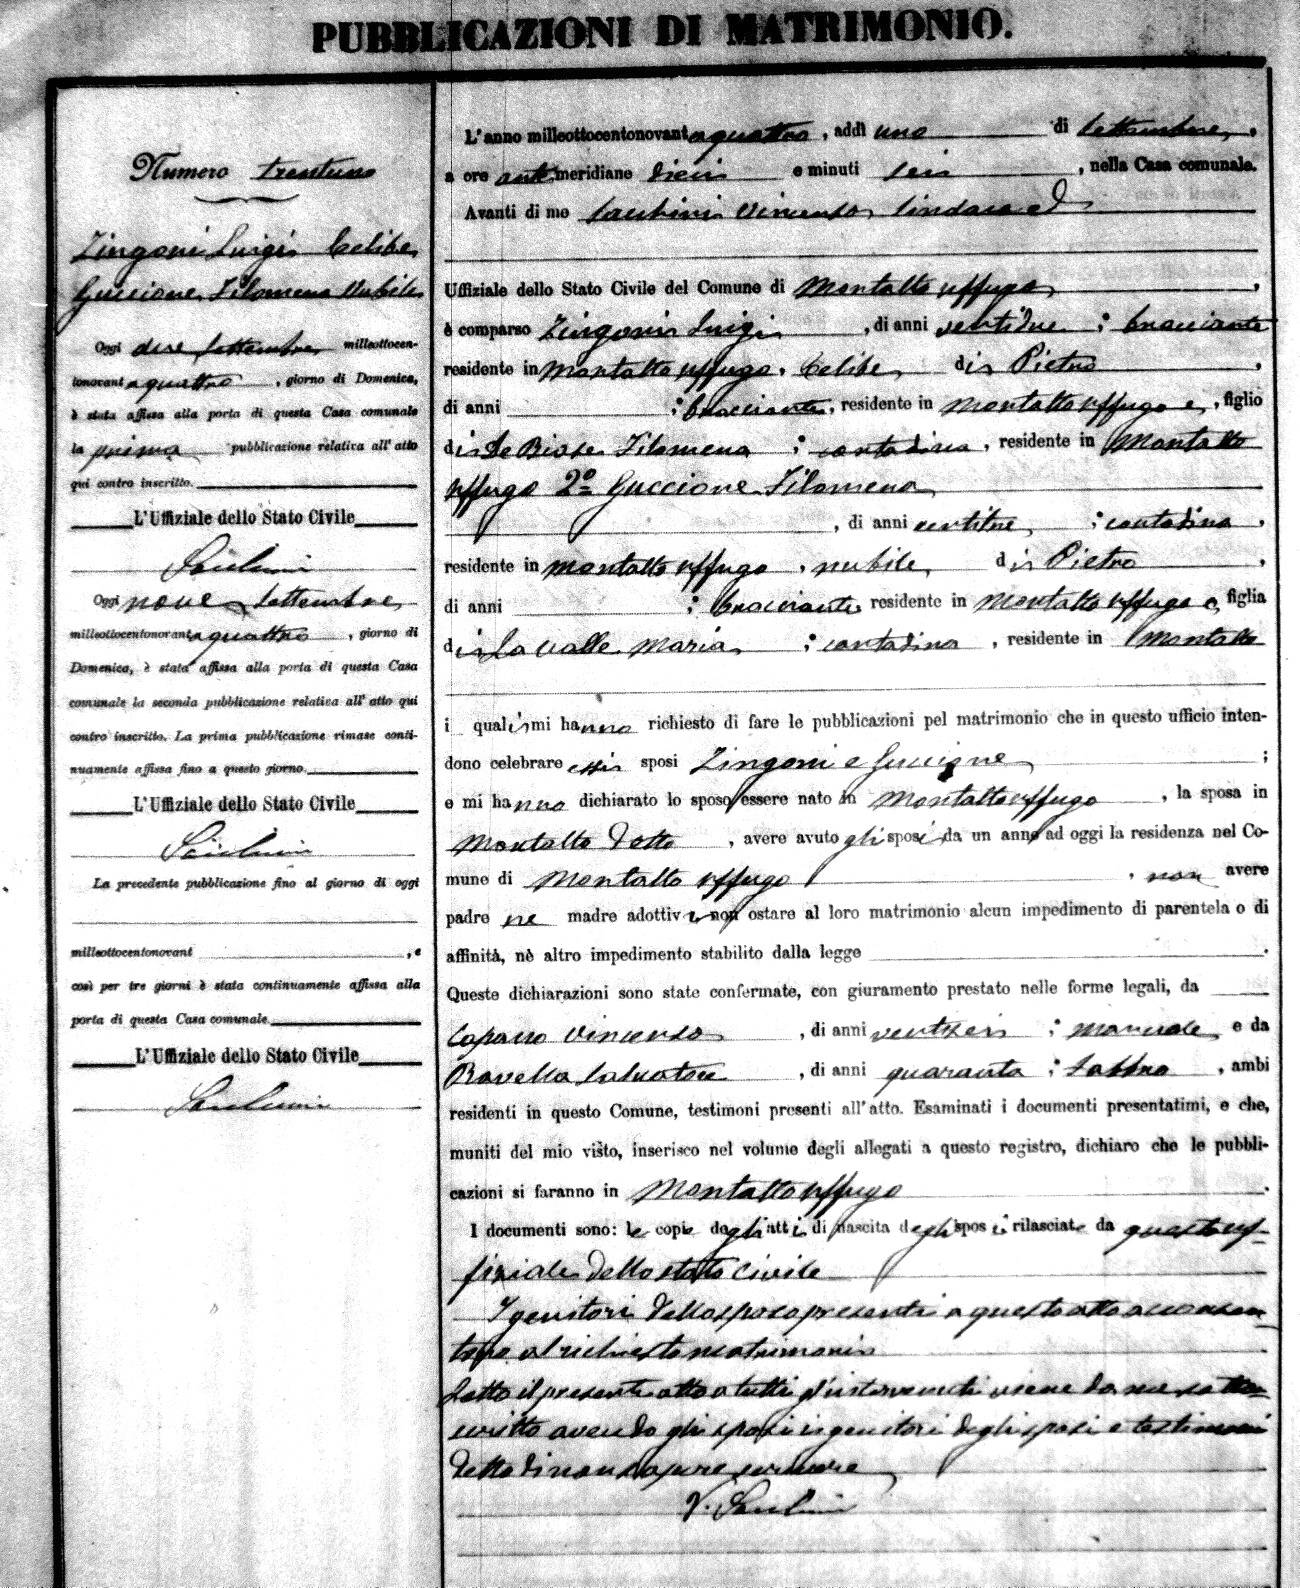 PUBBLICAZIONI DI MATRIMONIO.
Numero trentuno
Zingoni Luigi Celibe
Guccione Filomena Nubile
Oggi due Settembre milleottocen-
tonovant aquattro, giorno di Domenica,
è stata affissa alla porta di questa Casa comunale
la prima pubblicazione relativa all' atto
qui contro inscritto.
L'Uffiziale dello Stato Civile
Oggi nove Settembre
milleottocentonovant aquattro, giorno di
Domenica, è stata affissa alla porta di questa Casa
comunale la seconda pubblicazione relativa all' atto qui
contro inscritto. La prima pubblicazione rimase conti-
nuamente affissa fino a questo giorno.
L'Uffiziale dello Stato Civile
La precedente pubblicazione fino al giorno di oggi
milleottocentonovant , e
così per tre giorni è stata continuamente affissa alla
porta di questa Casa comunale
L'Uffiziale dello Stato Civile
L'anno milleottocentonovant aquattro, addì uno di Settembre,
a ore anti meridiane dieci e minuti sei, nella Casa comunale.
Avanti di me Vincenzo Sindaco ed
Uffiziale dello Stato Civile del Comune di Montalto Uffugo,
è comparso Zingoni Luigi, di anni ventidue; bracciante
residente in Montalto Uffugo, Celibe, di Pietro,
di anni ; bracciante, residente in Montalto Uffugo e, figlio
di De Biase Filomena; contadina, residente in Montalto
Uffugo 2º Guccione Filomena
, di anni ventitre; contadina,
residente in Montalto Uffugo, nubile, di Pietro,
di anni ; bracciante residente in Montalto Uffugo e, figlia
di La Valle Maria; contadina, residente in Montalto
i quali mi hanno richiesto di fare le pubblicazioni pel matrimonio che in questo ufficio inten-
dono celebrare essi sposi Zingoni e Guccione;
e mi hanno dichiarato lo sposo essere nato in Montalto Uffugo, la sposa in
Montalto detto, avere avuto gli sposi da un anno ad oggi la residenza nel Co-
mune di Montalto Uffugo, non avere
padre ne madre adottivi, non ostare al loro matrimonio alcun impedimento di parentela o di
affinità, nè altro impedimento stabilito dalla legge.
Queste dichiarazioni sono state confermate, con giuramento prestato nelle forme legali, da
Capano Vincenzo, di anni ventisei; manuale, e da
Ravella Salvatore, di anni quaranta; fabbro, ambi
residenti in questo Comune, testimoni presenti all'atto. Esaminati i documenti presentatimi, e che,
muniti del mio visto, inserisco nel volume degli allegati a questo registro, dichiaro che le pubbli-
cazioni si faranno in Montalto Uffugo.
I documenti sono: le copie degli atti di nascita degli sposi rilasciate da questo uf-
fiziale dello stato civile
I genitori dello sposo presenti a questo atto acconsen
tono al richiesto matrimonio
Letto il presente atto a tutti gl'intervenuti viene da me sotto
scritto avendo gli sposi i genitori degli sposi e testimoni
detto di non sapere scrivere